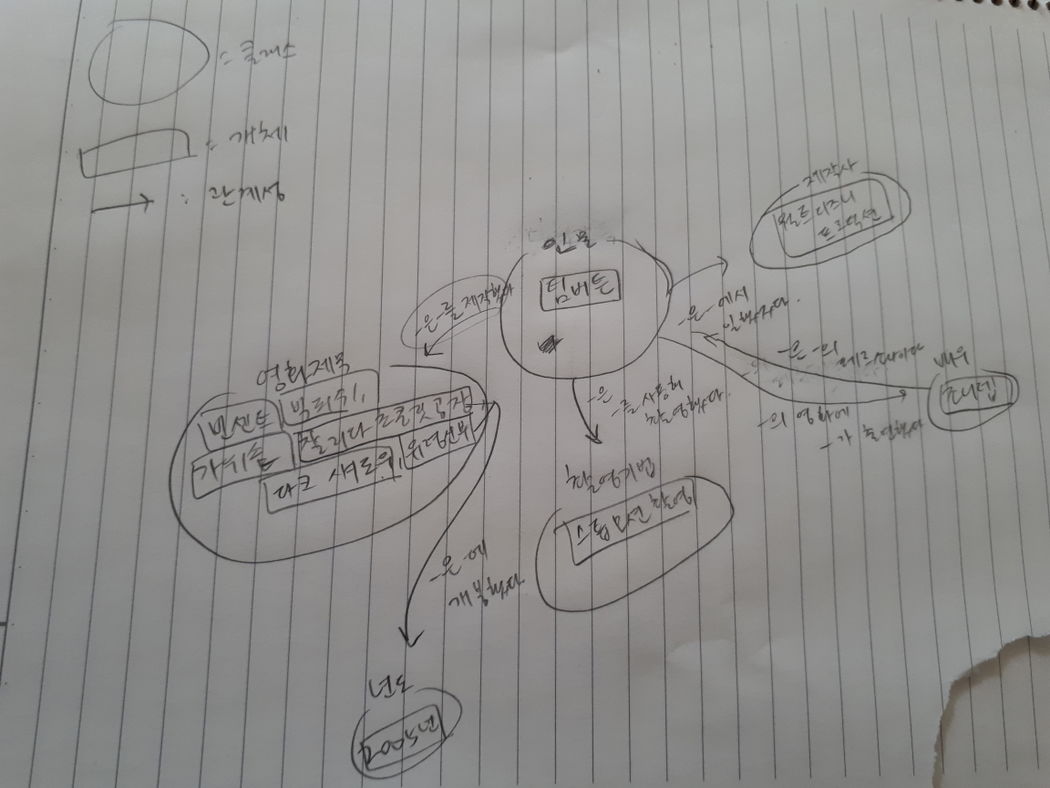 = 클래스
= 개체
: 관계성
제작사
월트디즈니
프로덕션
인물
팀버튼
-은-를 제작했다
-은-에서
일했었다.
-은-의
페르소나이다
배우
조니뎁
-의 영화에
-가 출연했다
-은
-를 사용해
촬영했다.
영화제목
빈센트
빅피쉬,
가위손
찰리와 초콜릿공장
다크 섀도우,
유령신부
촬영기법
스톱모션 촬영
-은-에
개봉했다.
년도
2005년